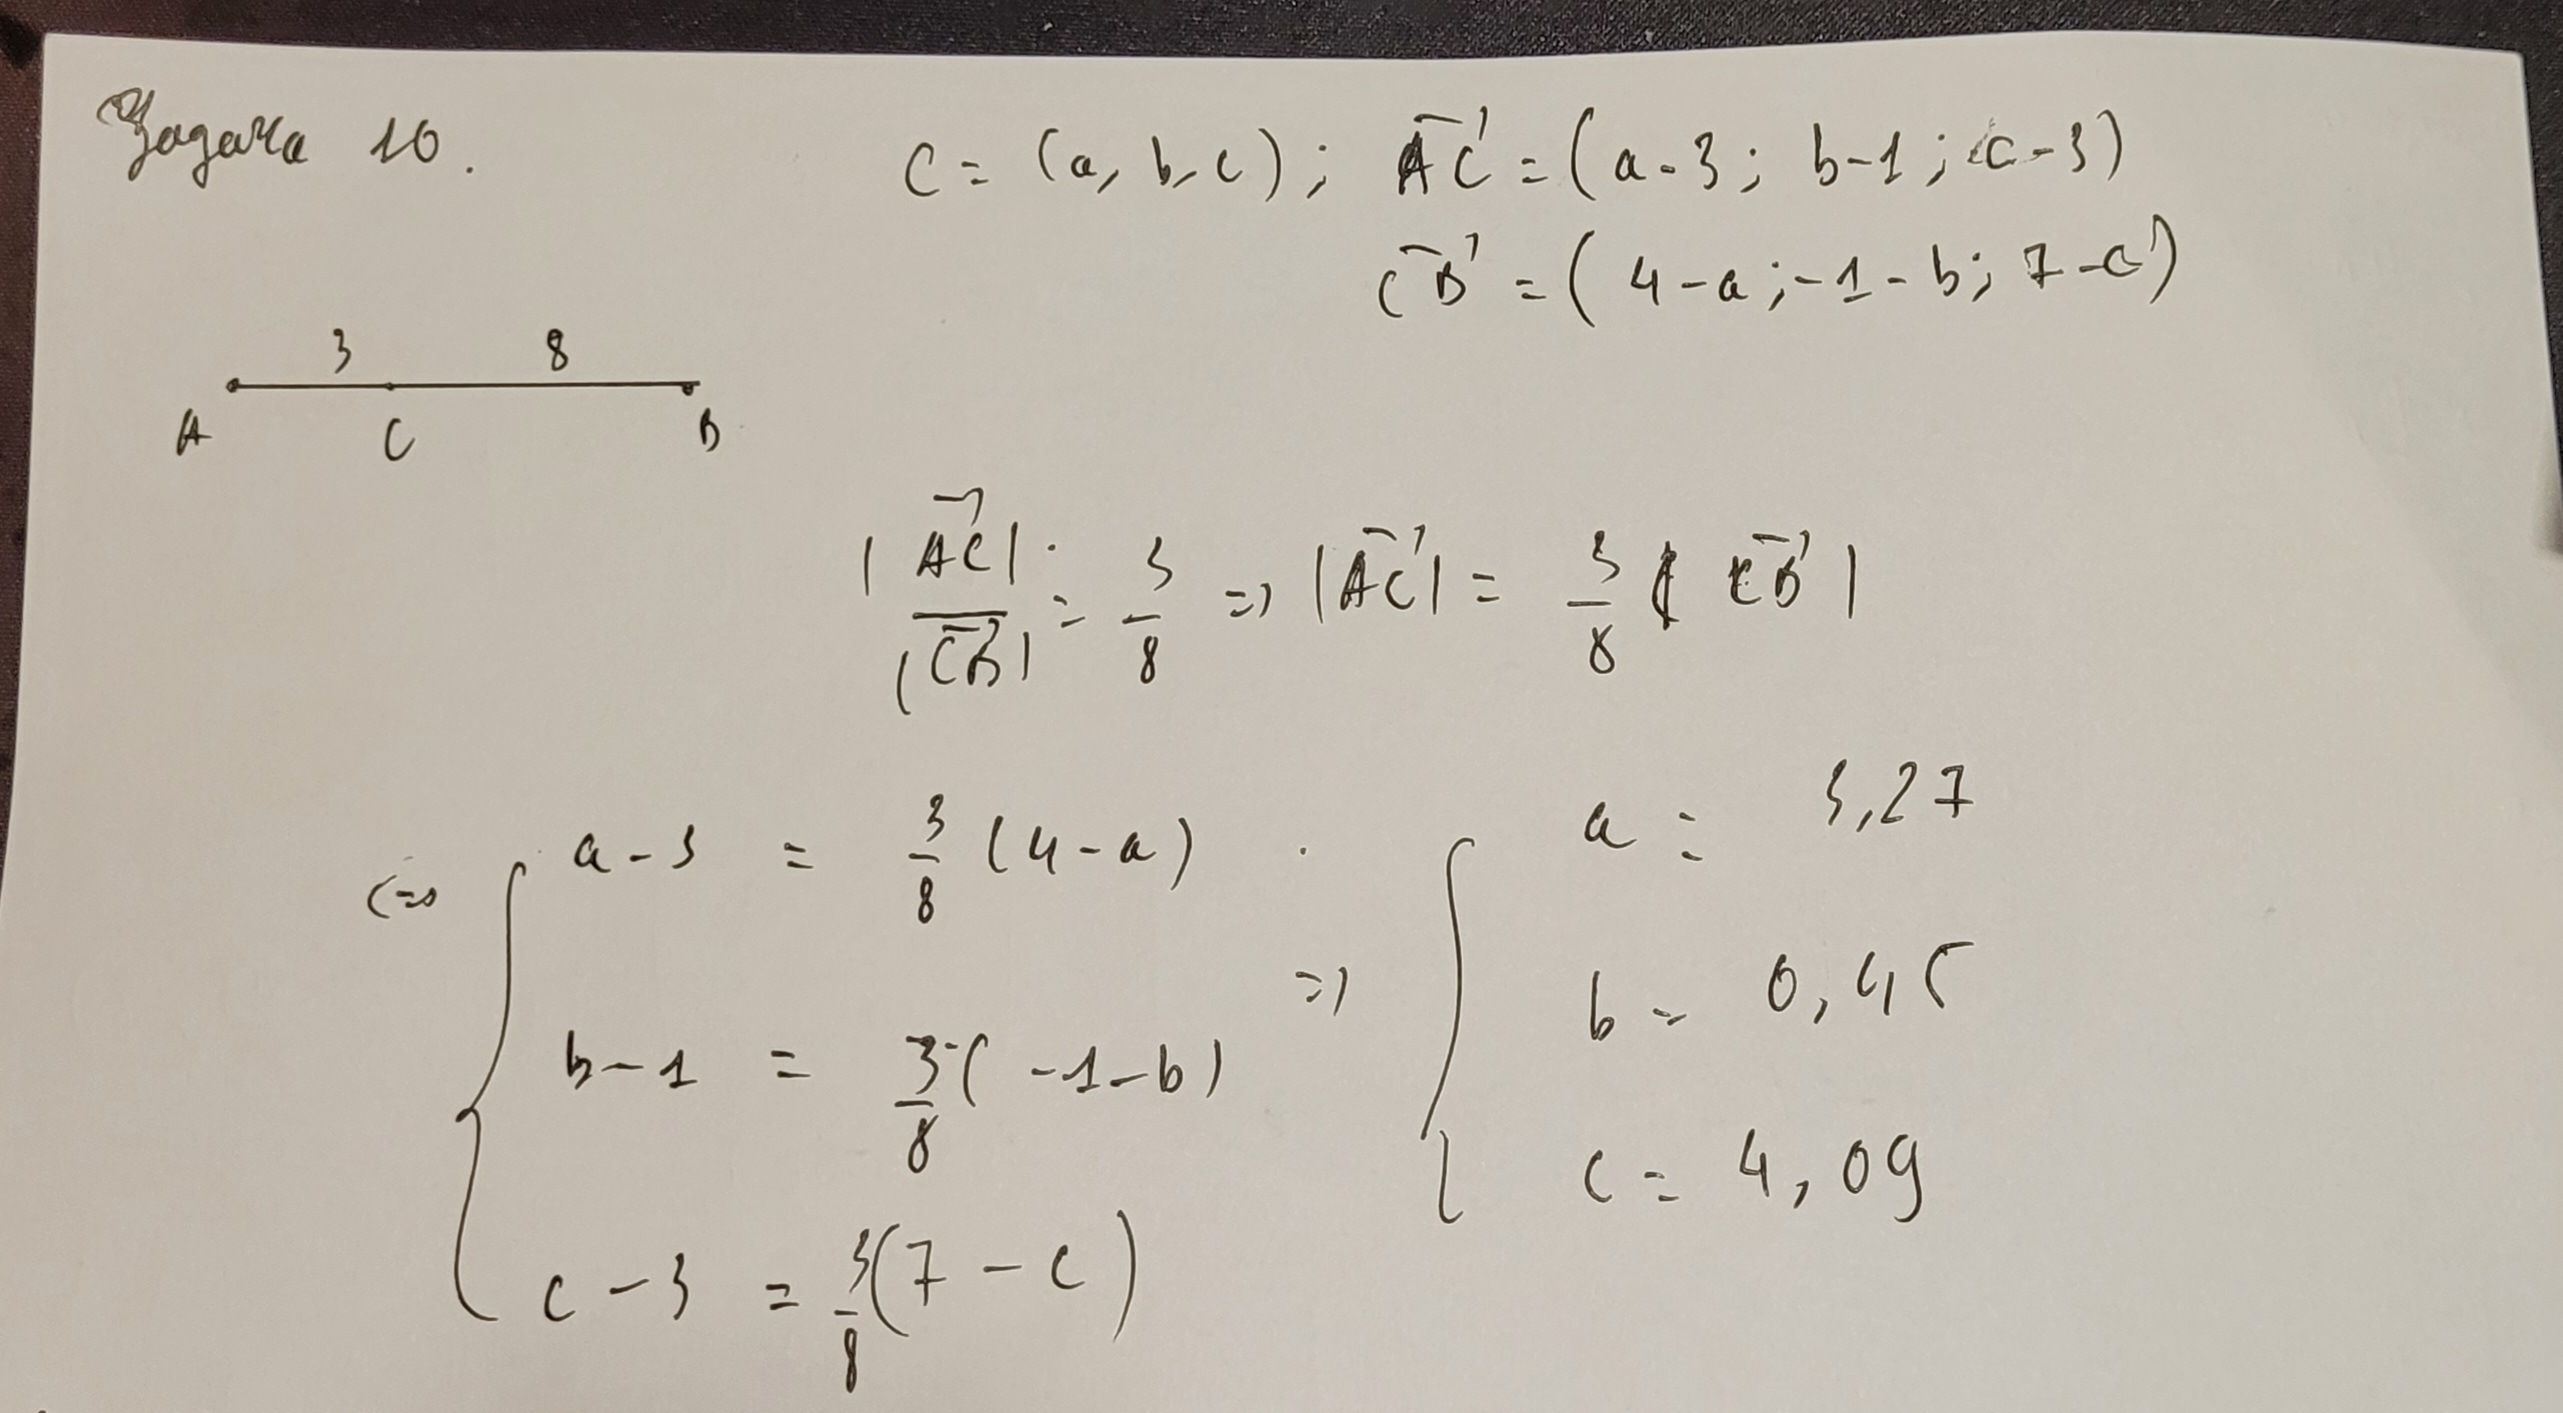 Задача 10.
C = (a, b, c); AC⃗ = (a-3; b-1; c-3)
CB⃗ = (4-a; -1-b; 7-c)
3 8
A C B
|AC⃗| / |CB⃗| = 3/8 => |AC⃗| = 3/8 |CB⃗|
<=> { a-3 = 3/8 (4-a)
b-1 = 3/8 (-1-b)
c-3 = 3/8 (7-c)
=> { a = 3,27
b = 0,45
c = 4,09